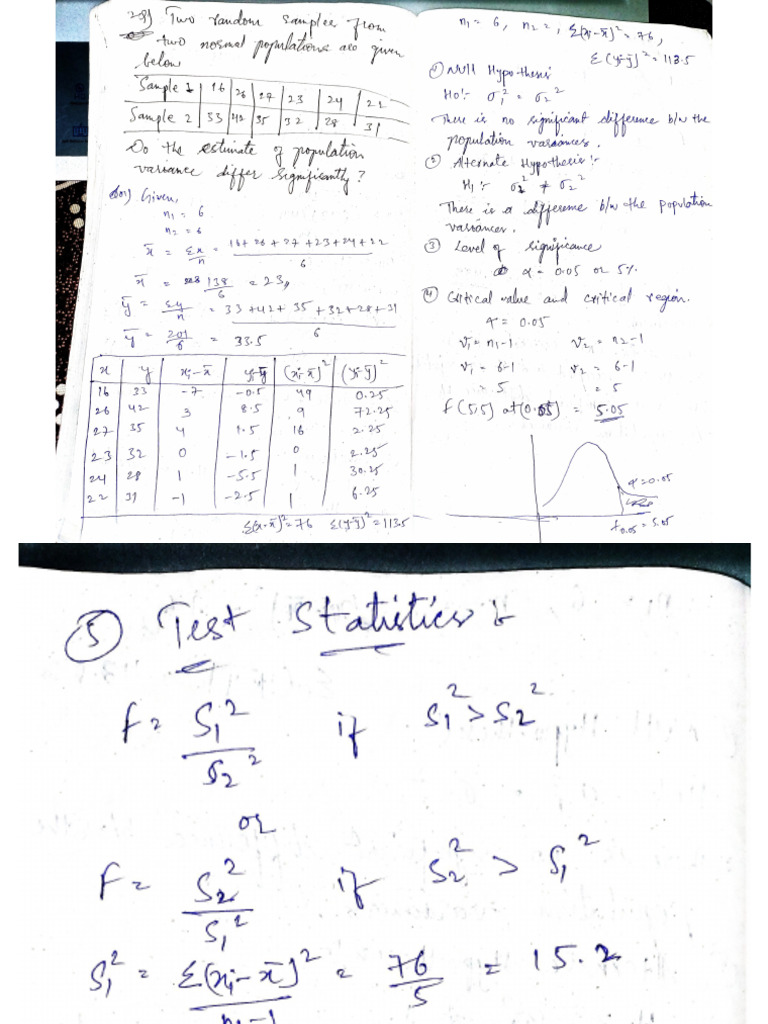 28) Two random samples from
two normal populations are given
below
Sample 1 | 16 | 26 | 27 | 23 | 24 | 22
Sample 2 | 33 | 42 | 35 | 32 | 28 | 31
Do the estimate of population
variance differ significantly?
Sol) Given,
n₁ = 6
n₂ = 6
x̄ = Σx/n = 16+26+27+23+24+22/6
x̄ = 138/6 = 23,
ȳ = Σy/n = 33+42+35+32+28+31/6
ȳ = 201/6 = 33.5
x | y | xi-x̄ | yi-ȳ | (xi-x̄)² | (yi-ȳ)²
16 | 33 | -7 | -0.5 | 49 | 0.25
26 | 42 | 3 | 8.5 | 9 | 72.25
27 | 35 | 4 | 1.5 | 16 | 2.25
23 | 32 | 0 | -1.5 | 0 | 2.25
24 | 28 | 1 | -5.5 | 1 | 30.25
22 | 31 | -1 | -2.5 | 1 | 6.25
Σ(x-x̄)²=76 Σ(y-ȳ)²=113.5
n₁ = 6, n₂ =, Σ(x-x̄)² = 76,
Σ(y-ȳ)² = 113.5
① Null Hypothesis
H0:- σ₁² = σ₂²
There is no significant difference b/w the
population variances.
② Alternate Hypothesis:-
H₁:- σ₁² ≠ σ₂²
There is a difference b/w the population
variances.
③ Level of significance
α = 0.05 or 5%
④ Critical value and critical region.
α = 0.05
v₁ = n₁-1 v₂ = n₂-1
v₁ = 6-1 v₂ = 6-1
= 5 = 5
F(5,5) at (0.05) = 5.05
α=0.05
f0.05 = 5.05
⑤ Test Statistics :-
F = S₁²/S₂² if S₁² > S₂²
or
F = S₂²/S₁² if S₂² > S₁²
S₁² = Σ(xi-x̄)²/n₁-1 = 76/5 = 15.2